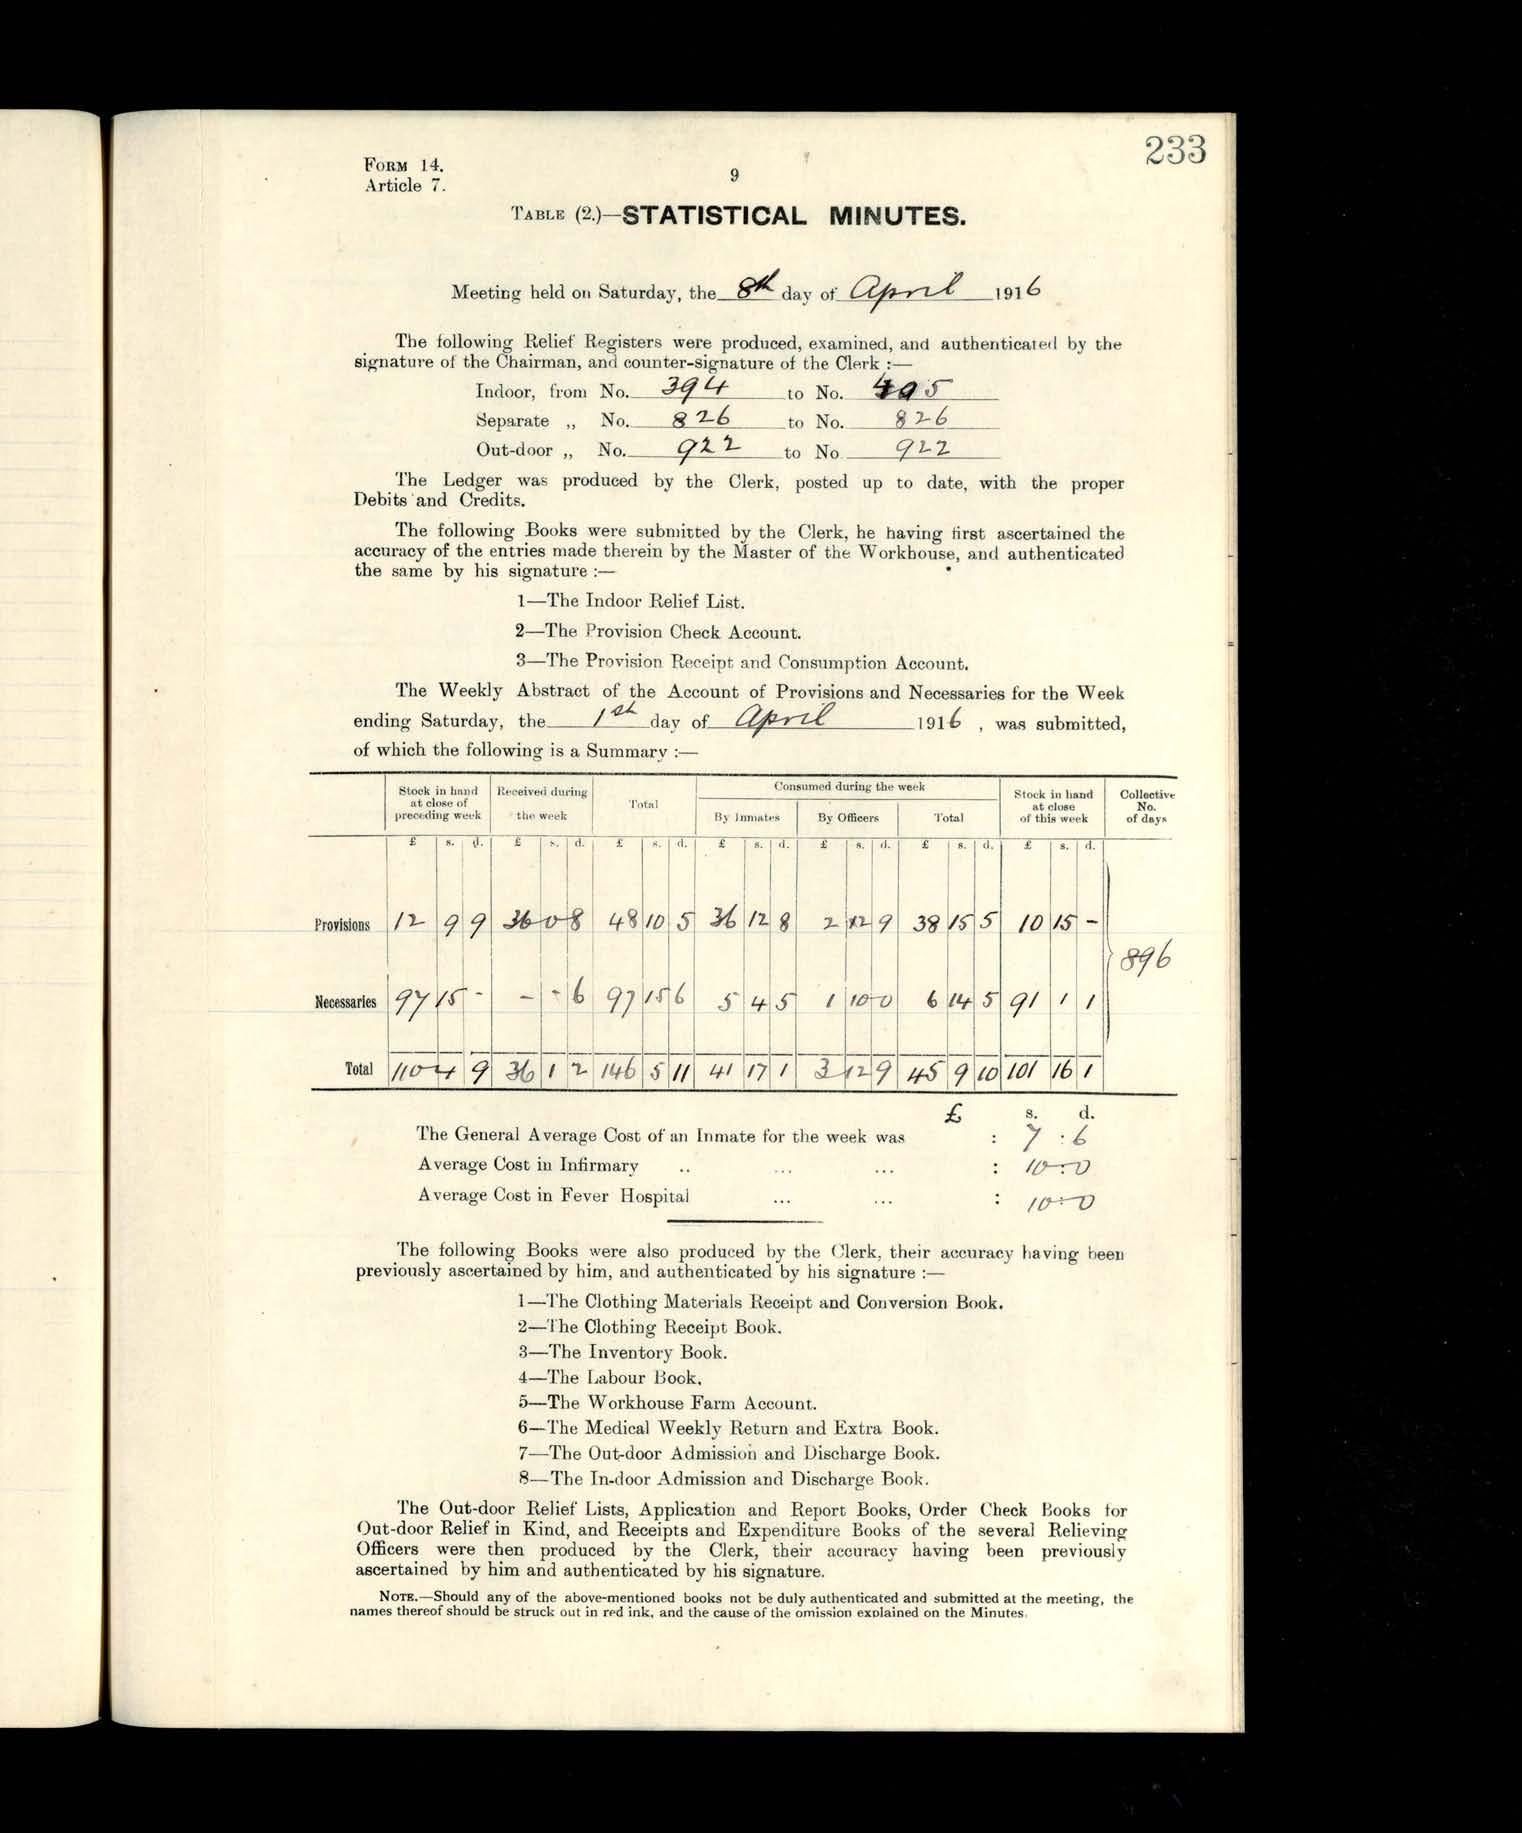 233
FORM 14.
Article 7.
9
TABLE (2.)—STATISTICAL MINUTES.
Meeting held on Saturday, the 8th day of April 1916
The following Relief Registers were produced, examined, and authenticated by the
signature of the Chairman, and counter-signature of the Clerk :—
Indoor, from No. 394 to No. 405
Separate „ No. 826 to No. 826
Out-door „ No. 922 to No 922
The Ledger was produced by the Clerk, posted up to date, with the proper
Debits and Credits.
The following Books were submitted by the Clerk, he having first ascertained the
accuracy of the entries made therein by the Master of the Workhouse, and authenticated
the same by his signature :—
1—The Indoor Relief List.
2—The Provision Check Account.
3—The Provision Receipt and Consumption Account.
The Weekly Abstract of the Account of Provisions and Necessaries for the Week
ending Saturday, the 1st day of April 1916 , was submitted,
of which the following is a Summary :—
Stock in hand at close of preceding week Received during the week Total Consumed during the week Stock in hand at close of this week Collective No. of days
By Inmates By Officers Total
£ s. d. £ s. d. £ s. d. £ s. d. £ s. d. £ s. d. £ s. d.
Provisions 12 9 9 36 0 8 48 10 5 36 12 8 2 2 9 38 15 5 10 15 -
896
Necessaries 97 15 - - - 6 97 15 6 5 4 5 1 10 0 6 14 5 91 1 1
Total 110 4 9 36 1 2 146 5 11 41 17 1 3 12 9 45 9 10 101 16 1
£ s. d.
The General Average Cost of an Inmate for the week was : 7 : 6
Average Cost in Infirmary .. ... ... : 10 : 0
Average Cost in Fever Hospital ... ... : 10 : 0
The following Books were also produced by the Clerk, their accuracy having been
previously ascertained by him, and authenticated by his signature :—
1—The Clothing Materials Receipt and Conversion Book.
2—The Clothing Receipt Book.
3—The Inventory Book.
4—The Labour Book.
5—The Workhouse Farm Account.
6—The Medical Weekly Return and Extra Book.
7—The Out-door Admission and Discharge Book.
8—The In-door Admission and Discharge Book.
The Out-door Relief Lists, Application and Report Books, Order Check Books for
Out-door Relief in Kind, and Receipts and Expenditure Books of the several Relieving
Officers were then produced by the Clerk, their accuracy having been previously
ascertained by him and authenticated by his signature.
NOTE.—Should any of the above-mentioned books not be duly authenticated and submitted at the meeting, the
names thereof should be struck out in red ink, and the cause of the omission explained on the Minutes.